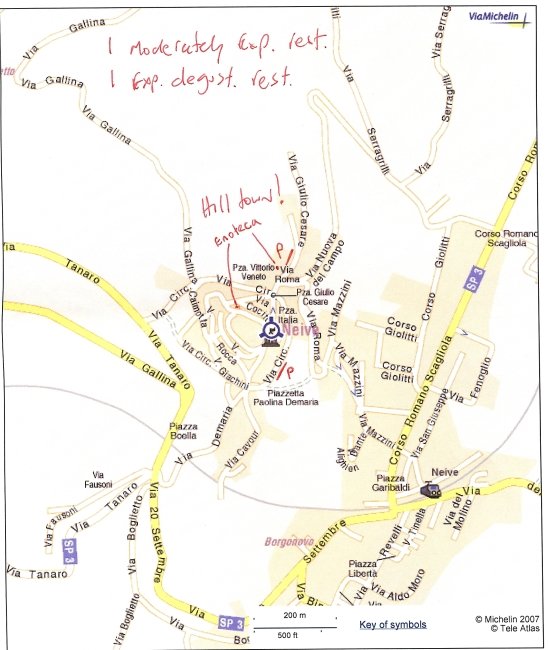 ViaMichelin
Via Gallina
1 Moderately Exp. rest.
1 Exp. degust. rest.
Via Gallina
Via Gallina
Via Serragrilli
Via Serragrilli
Corso Romano
Hill town!
Enoteca
P
Via Giulio Cesare
Via Nuova del Campo
Corso Romano
Scagliola
SP 3
Via Gallina
Pza. Vittorio
Veneto
Via
Roma
Pza. Giulio
Cesare
Via Circ.
Via Tanaro
Via Circ.
Calmotta
Via Cocito
Pza.
Italia
Neive
Via Mazzini
Corso Giolitti
Corso
Giolitti
Corso
Giolitti
Via Tanaro
Via Gallina
Via Circ.
Rocca
Via Giachini
Via Circ.
P
Via Roma
Via Mazzini
Corso Romano Scagliola
Via Fenoglio
Piazzetta
Paolina Demaria
Via San Giuseppe
Piazza
Boella
Via Demaria
Via Cavour
Via Mazzini
Dante
Alighieri
Piazza
Garibaldi
Neive
Via
Fausoni
Via Tanaro
Via Fausoni
SP 3
Via Tanaro
Via Boglietto
Via 20 Settembre
Borgonovo
Settembre
Via del Molino
Via
Revelli
Piazza
Libertà
Via Aldo Moro
Via Boglietto
Via
SP 3
200 m
500 ft
Key of symbols
© Michelin 2007
© Tele Atlas